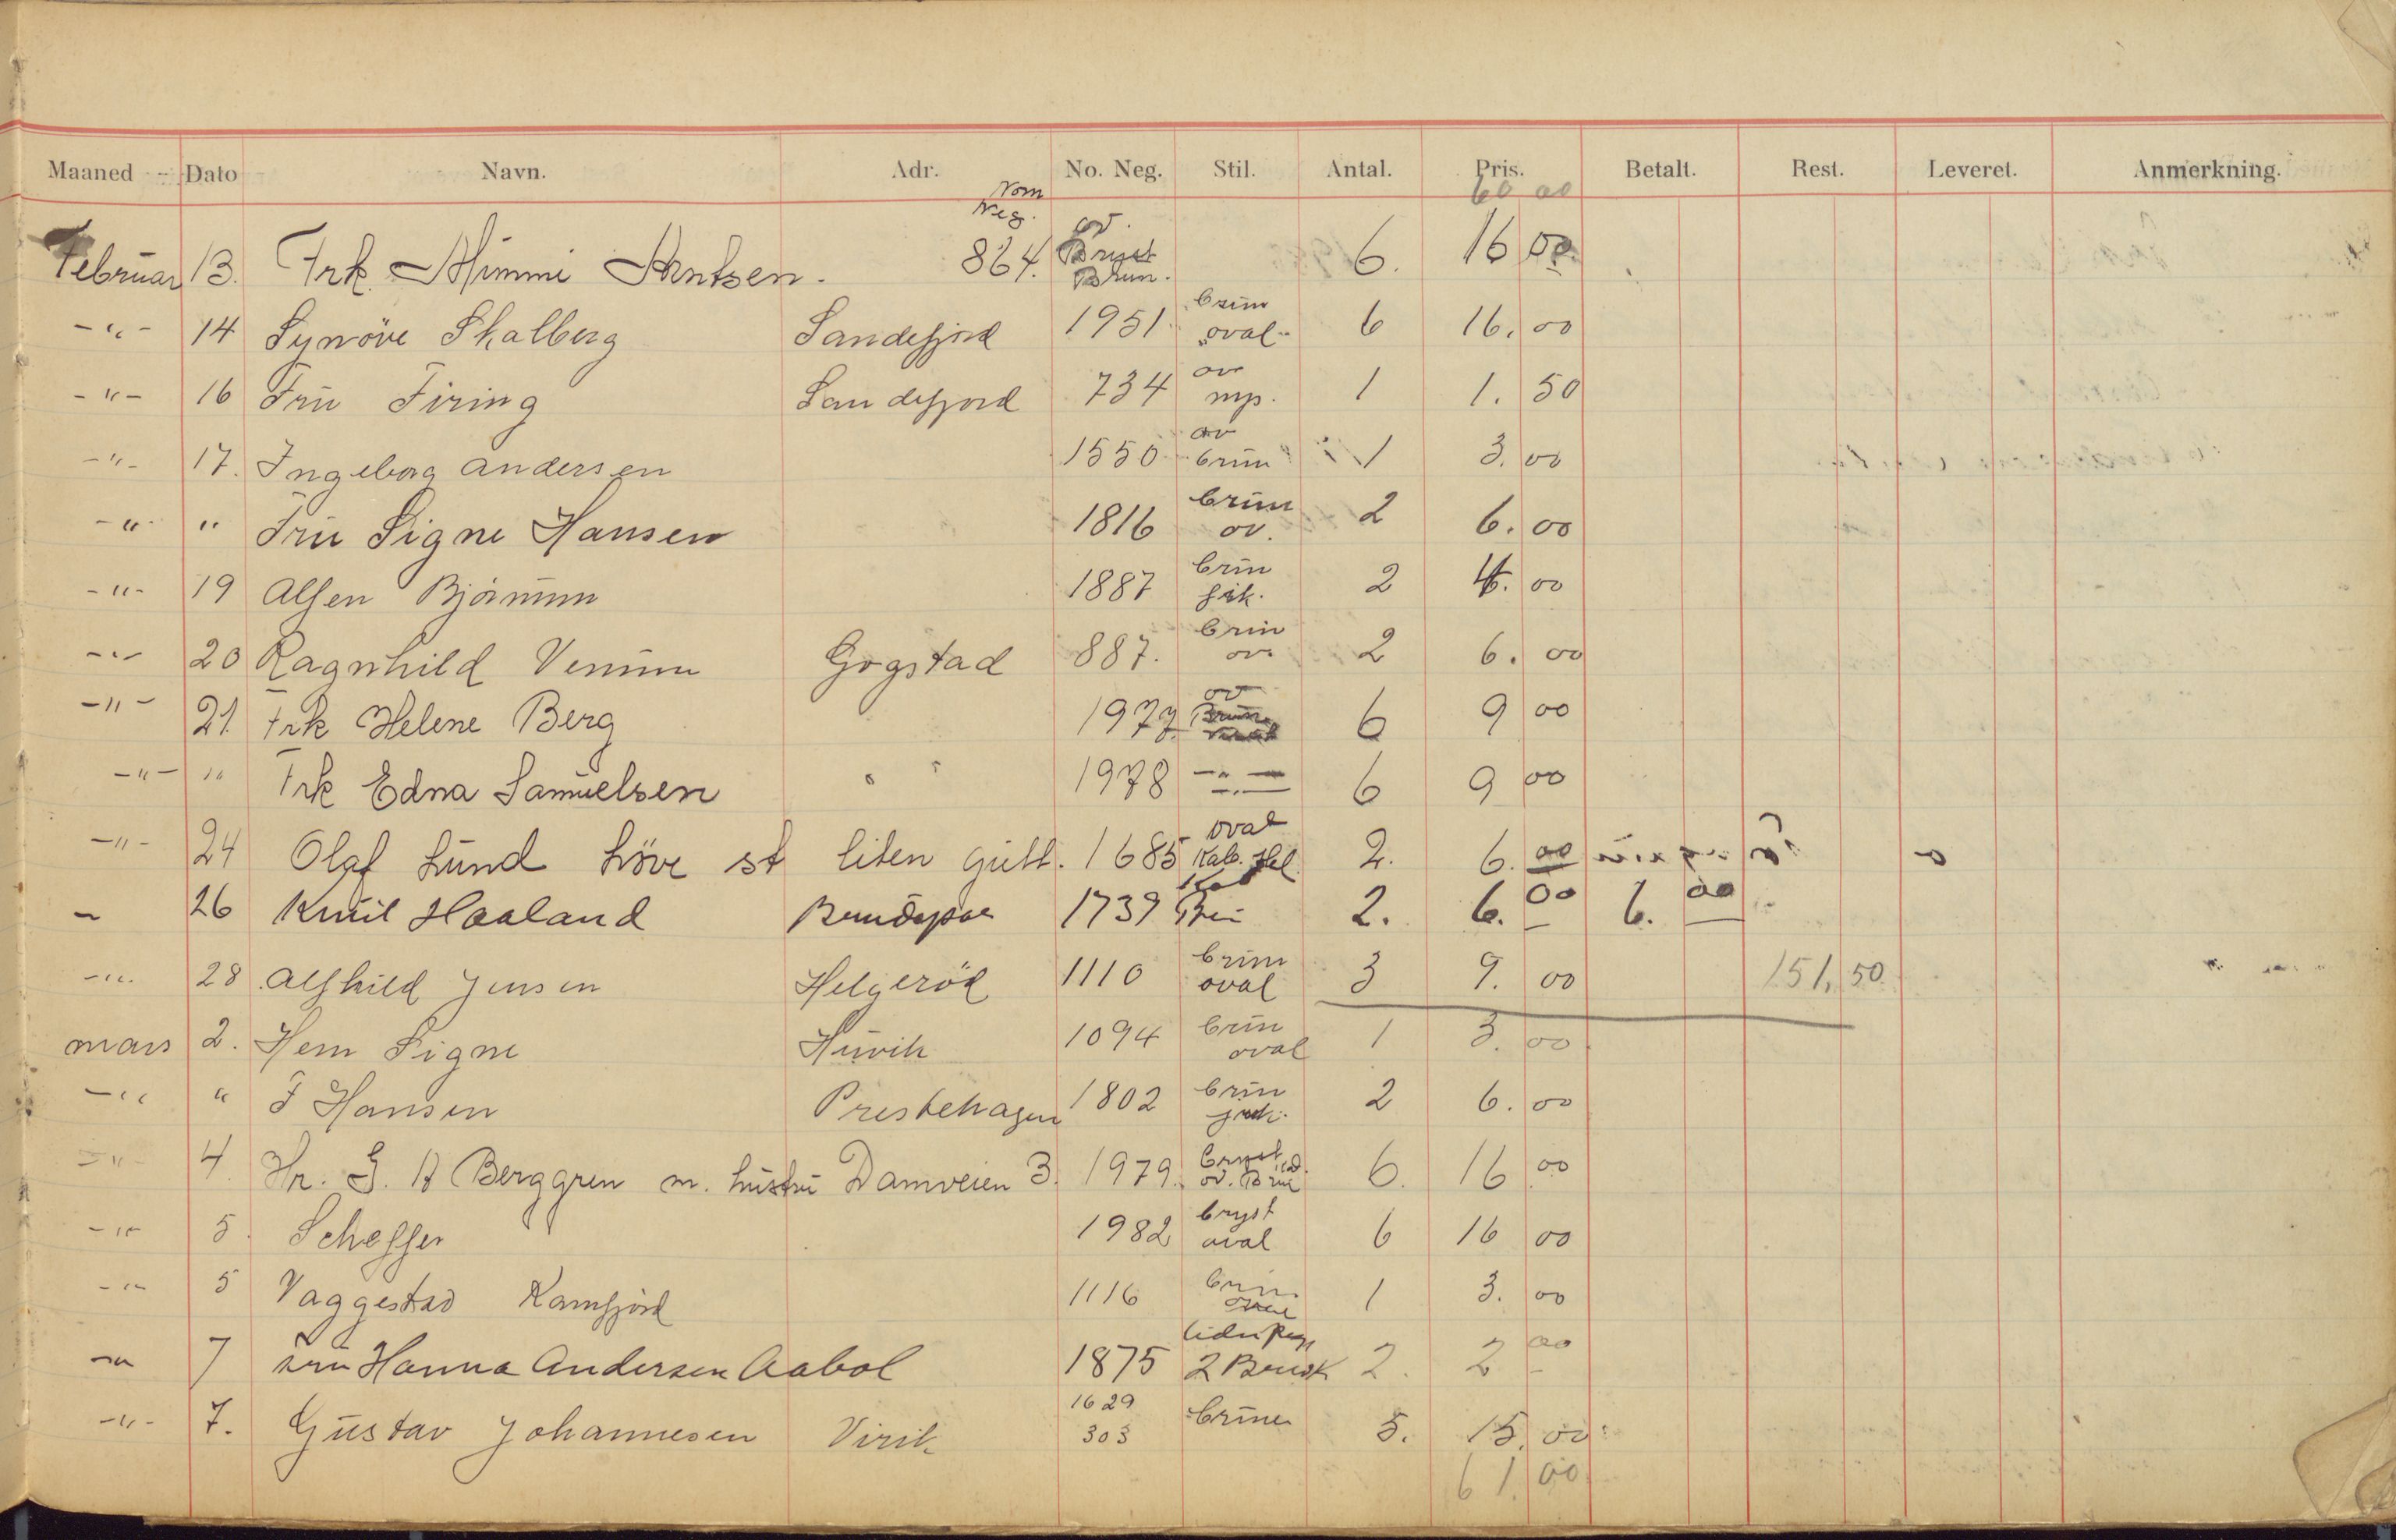 Maaned Dato Navn. Adr. No. Neg. Stil. Antal. Pris. Betalt. Rest. Leveret. Anmerkning.
60 00
Februar 13. Frk. Mimmi Arntsen. Neg. 864. ov. Bryst Brun. 6. 16 00
-"- 14 Synöve Skalberg Sandefjord 1951 brun oval 6 16. 00
-"- 16 Frú Firing Sandefjord 734 ov 1 1. 50
-"- 17. Ingeborg Andersen 1550 ov brún 1 3. 00
-"- " Frú Signe Hansen 1816 brún ov. 2 6. 00
-"- 19 Alfsen 1887 brún 2 4. 00
-"- 20 Ragnhild Gogstad 887. brún ov. 2 6. 00
-"- 21. Frk Helene Berg 1977 ov 6 9 00
-"- " Frk Edna Samúelsen " 1978 -"- 6 9 00
-"- 24 Olaf Lúnd höve st liten gútt. 1685 oval Kab. Hel 2. 6. 00
26 Knút Haaland 1739 2. 6. 00 6. 00
-"- 28 Alfhild Jensen Helgeröd 1110 brún oval 3 9. 00 151, 50
mars 2. Hem Signe 1094 brún oval 1 3. 00
-"- " F Hansen Prestehagen 1802 brún 2 6. 00
-"- 4. Hr. G. A Berggren m. hústrú Damveien 3. 1979. bryst ov. 6. 16 00
-"- 5. Scheffer 1982 bryst oval 6 16 00
-"- 5 Vaggestad Kamfjord 1116 brún 1 3. 00
-"- 7 Frú Hanna Andersen Aabol 1875 2 2. 2 00
-"- 7. Gústav Johannesen Virik 1629 303 brúne 5. 15. 00
61. 00